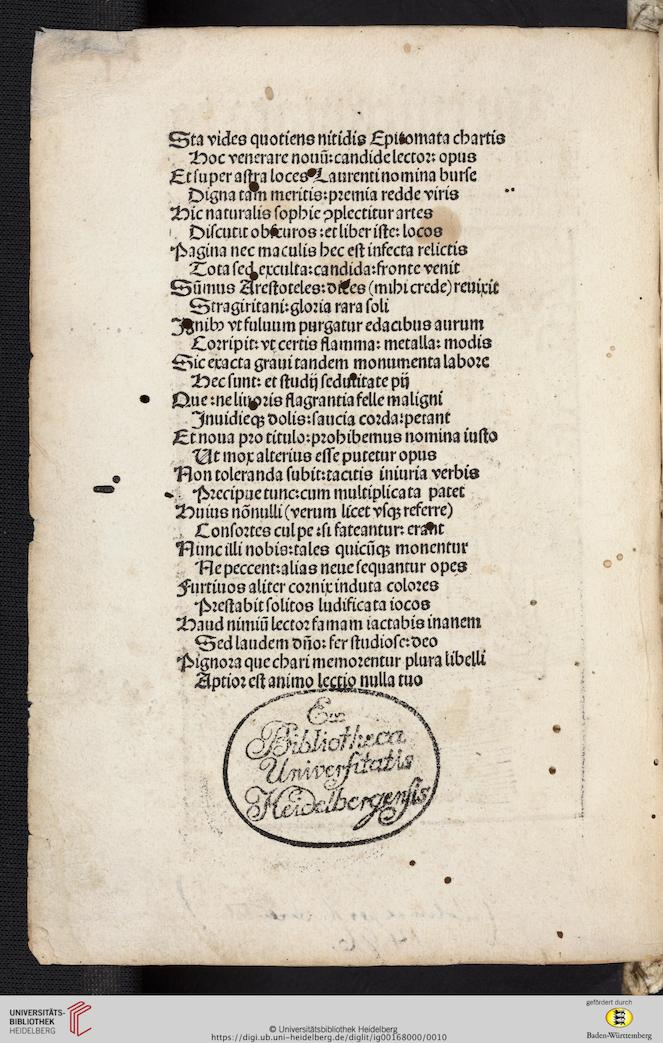 Sta vides quotiens nitidis Epitomata chartis
Hoc venerare nouũ: candide lector: opus
Et super astra loces Laurenti nomina burse
Digna tam meritis: premia redde viris
Hic naturalis sophie ꝯplectitur artes
Discutit obscuros: et liber iste: locos
Pagina nec maculis hec est infecta relictis
Tota sed exculta: candida: fronte venit
Sũmus Arestoteles: dices (mihi crede) reuixit
Stragiritani: gloria rara soli
Ignibꝰ vt fuluum purgatur edacibus aurum
Corripit: vt certis flamma: metalla: modis
Sic exacta graui tandem monumenta labore
Hec sunt: et studij sedulitate pij
Que: ne liuoris flagrantia felle maligni
Inuidieqꝫ dolis: saucia corda: petant
Et noua pro titulo: prohibemus nomina iusto
Ut mox alterius esse putetur opus
Non toleranda subit: tacitis iniuria verbis
Precipue tunc: cum multiplicata patet
Huius nõnulli (verum licet vsqꝫ referre)
Consortes culpe: si fateantur: erant
Nunc illi nobis: tales quicũqꝫ monentur
Ne peccent: alias neue sequantur opes
Furtiuos aliter cornix induta colores
Prestabit solitos ludificata iocos
Haud nimiũ lector famam iactabis inanem
Sed laudem dño: fer studiose: deo
Pignora que chari memorentur plura libelli
Aptior est animo lectio nulla tuo
Ex
Bibliotheca
Universitatis
Heidelbergensis
UNIVERSITÄTS-
BIBLIOTHEK
HEIDELBERG
© Universitätsbibliothek Heidelberg
https://digi.ub.uni-heidelberg.de/diglit/ig00168000/0010
gefördert durch
Baden-Württemberg